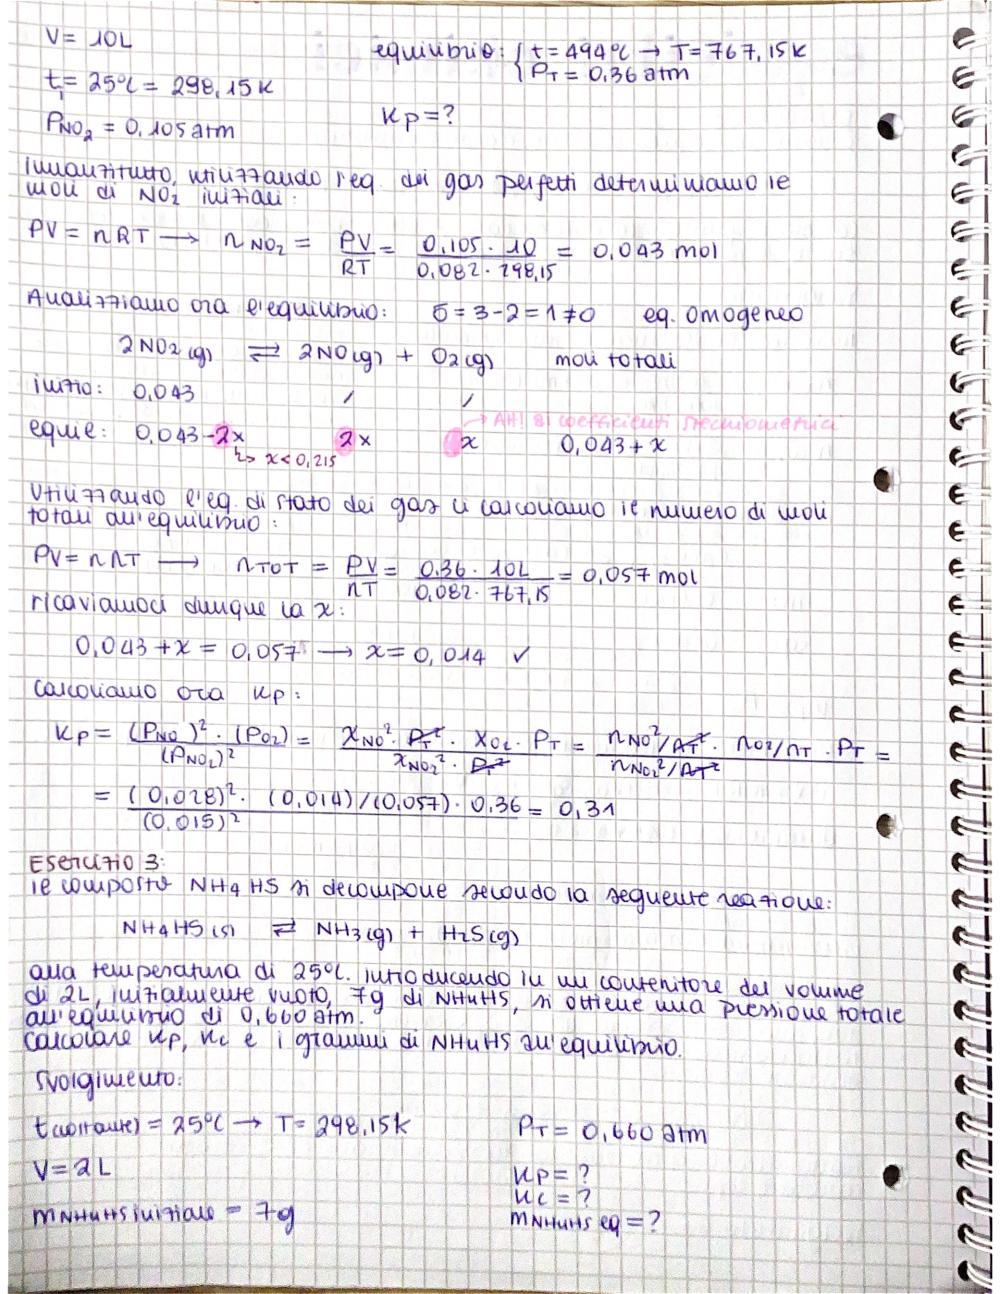 V = 10L
equilibrio: { t = 494°C → T = 767,15K
t₁ = 25°C = 298,15K
P_T = 0,36 atm
P_NO₂ = 0,105 atm
Kp = ?
innanzitutto, utilizzando l'eq. dei gas perfetti determiniamo le
moli di NO₂ iniziali:
PV = nRT → n NO₂ = PV/RT = 0,105 · 10 / 0,082 · 298,15 = 0,043 mol
Analizziamo ora l'equilibrio: δ = 3-2 = 1 ≠ 0 eq. omogeneo
2NO₂(g) ⇄ 2NO(g) + O₂(g) moli totali
inizio: 0,043 / /
→ AH! ai coefficienti stechiometrici
equil: 0,043-2x 2x x 0,043 + x
↳ x < 0,215
Utilizzando l'eq. di stato dei gas ci calcoliamo il numero di moli
totali all'equilibrio:
PV = nRT → n TOT = PV/RT = 0,36 · 10L / 0,082 · 767,15 = 0,057 mol
ricaviamoci dunque la x:
0,043 + x = 0,057 → x = 0,014 ✓
Calcoliamo ora Kp:
Kp = (P_NO)² · (P_O₂) / (P_NO₂)² = x_NO² · P_T² · x_O₂ · P_T / x_NO₂² · P_T² = n_NO²/n_T² · n_O₂/n_T · P_T / n_NO₂²/n_T² =
= (0,028)² · (0,014)/(0,057) · 0,36 / (0,015)² = 0,31
Esercizio 3:
il composto NH4HS si decompone secondo la seguente reazione:
NH4HS(s) ⇄ NH3(g) + H2S(g)
alla temperatura di 25°C. introducendo in un contenitore del volume
di 2L, inizialmente vuoto, 7g di NH4HS, si ottiene una pressione totale
all'equilibrio di 0,660 atm.
Calcolare Kp, Kc e i grammi di NH4HS all'equilibrio.
Svolgimento:
t(costante) = 25°C → T = 298,15K
P_T = 0,660 atm
V = 2L
Kp = ?
Kc = ?
m NH4HS iniziale = 7g
m NH4HS eq = ?